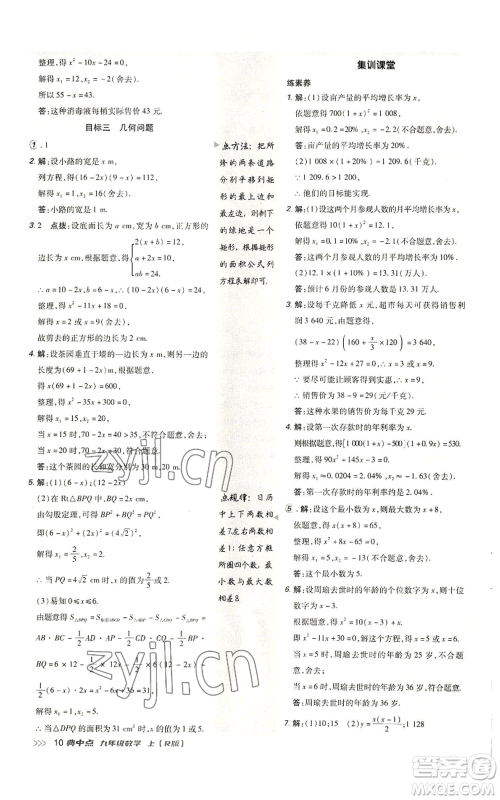 整理,得x²-10x-24=0,
解得x₁=12,x₂=-2(舍去).
所以 55-x=43.
答:这种消毒液每桶实际售价为 43 元.
目标三 几何问题
1.1
2.解:设小路的宽是x m,
列方程,得(60-2x)(40-x)=60×
整理,得x²-70x+
解得 x₁=10,x₂=60(舍去).
答:小路的宽是10 m.
3.2 点拨:设底面长为a cm,宽为b cm,正方形的
边长为x cm,根据题意,得 {2(x+b)=12, a+2x=10, ab=24,
∴a=10-2x,b=6-x,∴(10-2x)(6-x)=24,
整理,得x²-11x+18=0,
解得x=2或x=9(舍去).
故剪去的正方形的边长为2 cm.
4.解:设茶园垂直于墙的一边长为x m,则另一边的
长度为(69+1-2x)m,根据题意,得
x(69+1-2x)=600,
整理,得x²-35x+300=0,
解得x₁=15,x₂=20,
当x=15时,70-2x=40>35,不符合题意,舍去;
当x=20时,70-2x=30,符合题意.
答:这个茶园的长和宽分别为30 m,20 m.
5.解:(1)(6-x);(12-2x)
(2)在Rt△BPQ中,∠B=90°,
由勾股定理,得PB²+BQ²=PQ²,
即(6-x)²+(2x)²=(4√2)²,
解得x₁=2/5,x₂=2.
∴当PQ=4√2 cm时,x的值为2/5或2.
(3)存在.
由题意得S△DPQ=S矩形ABCD-S△APD-S△BPQ-S△CDQ=
AB·BC-1/2AD·AP-1/2CD·CQ-1/2BP·
BQ=6×12-1/2×12x-1/2×6(12-2x)-1/2(6-
x)·2x=x²-6x+36=28,
解得x₁=2,x₂=4.
∴当△DPQ的面积为28 cm²时,x的值为2或4.
点方法:把所
修的两条道路
分别平移到矩
形的最上边和
最左边,则剩下
的绿地是一个
矩形,根据矩形
的面积公式列
方程求解即可.
点规律:日历
中上下两数相
差7,左右两数相
差1;任意方框
所圈的数中,最
小数与最大数
相差8
集训课堂
练素养
1.解:(1)设亩产量的平均增长率为x,
依题意得 700(1+x)²=1 008,
解得x₁=0.2=20%,x₂=-2.2(不合题意,舍去).
答:亩产量的平均增长率为20%.
(2)1 008×(1+20%)=1 209.6(千克).
∵1 209.6>1 200,
∴他们的目标能实现.
2.解:(1)设这两个月参观人数的月平均增长率为x,
依题意得 10(1+x)²=12.1,
解得x₁=0.1=10%,x₂=-2.1(不合题意,舍去).
答:这两个月参观人数的月平均增长率为10%.
(2)12.1×(1+10%)=13.31(万人).
答:预计6月份的参观人数为13.31万人.
3.解:设每千克降低x元,超市每天可获得销售利
润3 640元,由题意,得
(38-x-22)(160+x/3×120)=3 640,
整理,得x²-12x+27=0,∴x=3或x=9.
∵要尽可能让顾客得到实惠,∴x=9,
∴售价为38-9=29(元/千克).
答:这种水果的销售价为每千克29元.
4.解:设第一次存款时的年利率为x.
则根据题意,得[1 000(1+x)-500](1+0.9x)=530.
整理,得90x²+145x-3=0.
解得x₁≈0.020 4=2.04%,x₂≈-1.63(舍去).
答:第一次存款的年利率约是2.04%.
5.解:设这个最小数为x,则最大数为(x+8),
依题意,得x(x+8)=65,
整理,得x²+8x-65=0,
解得x₁=5,x₂=-13(不合题意,舍去).
答:这个最小数为5.
6.解:设周瑜去世时的年龄的个位数字为x,则十位
数字为x-3.
根据题意,得10(x-3)+x=x²,
即x²-11x+30=0,解得x₁=5,x₂=6.
当x=5时,周瑜去世时的年龄为25岁,25<30,
不合题意,舍去;
当x=6时,周瑜去世时的年龄为36岁,符合题意.
答:周瑜去世时的年龄为36岁.
7.解:(1)10;15 (2)x(x-1)/2;1 128
10 典中点 九年级数学 上(R版)
zyjl.cn
zyjl.cn